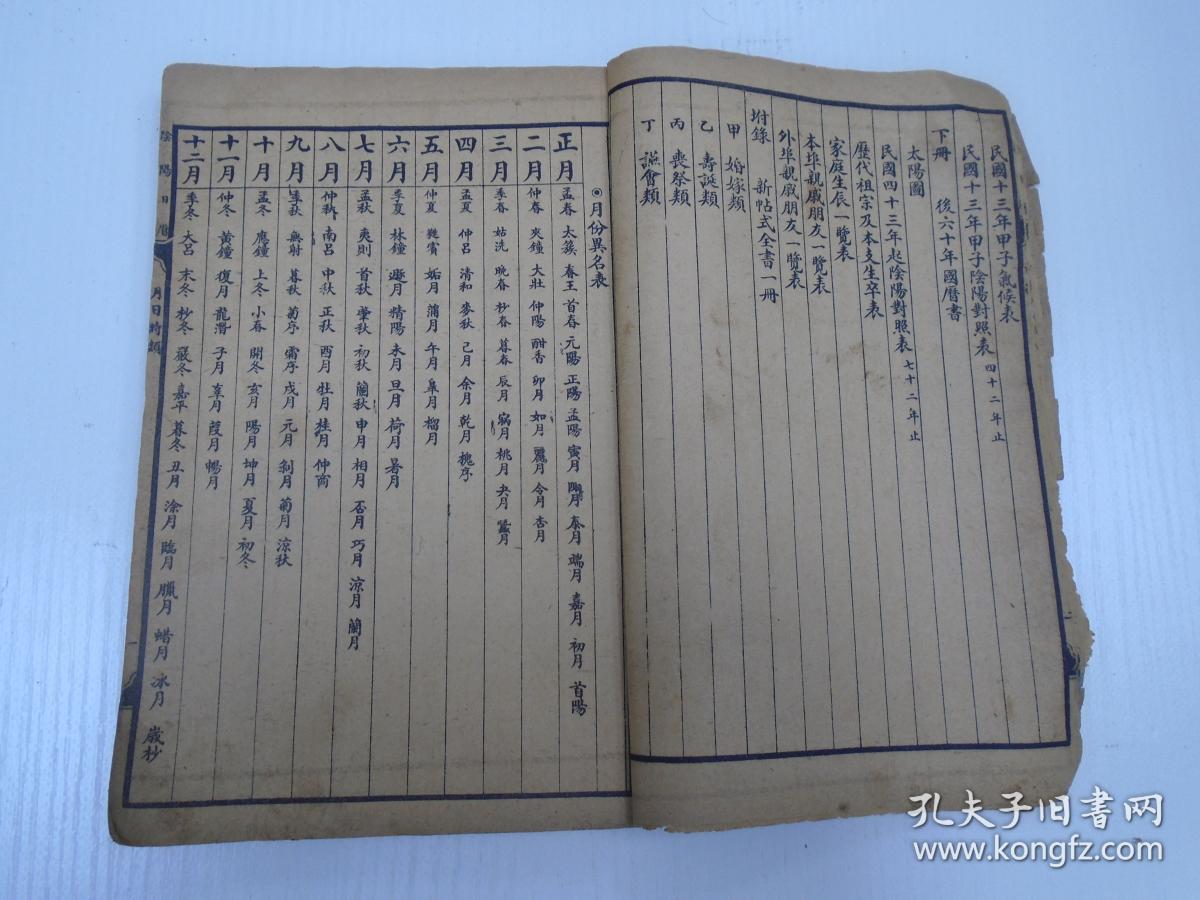 民國十三年甲子氣候表
民國十三年甲子陰陽對照表 四十二年止
下冊 後六十年國曆書
太陽圖
民國四十三年起陰陽對照表 七十二年止
歷代祖宗及本支生卒表
家庭生辰一覽表
本埠親戚朋友一覽表
外埠親戚朋友一覽表
坿錄 新帖式全書一冊
甲 婚嫁類
乙 壽誕類
丙 喪祭類
丁 讌會類
◉月份異名表
正月 孟春 太簇 春王 首春 元陽 正陽 孟陽 寅月 陬月 泰月 端月 嘉月 初月 首陽
二月 仲春 夾鐘 大壯 仲陽 酣香 卯月 如月 麗月 令月 杏月
三月 季春 姑洗 晚春 杪春 暮春 辰月 窩月 桃月 夬月 蠶月
四月 孟夏 仲呂 清和 麥秋 己月 余月 乾月 槐序
五月 仲夏 蕤賓 姤月 蒲月 午月 皐月 榴月
六月 季夏 林鐘 遯月 精陽 未月 旦月 荷月 暑月
七月 孟秋 夷則 首秋 肇秋 初秋 蘭秋 申月 相月 否月 巧月 涼月 蘭月
八月 仲秋 南呂 中秋 正秋 酉月 壯月 桂月 仲商
九月 季秋 無射 暮秋 菊序 霜序 戌月 元月 剝月 菊月 涼秋
十月 孟冬 應鐘 上冬 小春 開冬 亥月 陽月 坤月 夏月 初冬
十一月 仲冬 黃鐘 復月 龍潛 子月 辜月 葭月 暢月
十二月 季冬 大呂 末冬 杪冬 嚴冬 嘉平 暮冬 丑月 涂月 臨月 臘月 蜡月 冰月 歲杪
陰陽日曆
月日時類
孔夫子旧书网
www.kongfz.com